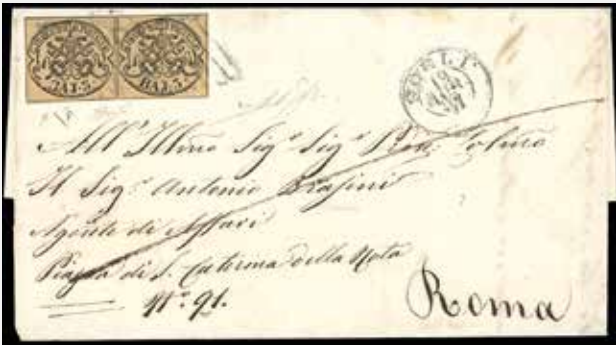 BAJ. 3 BAJ. 3
All' Illmo Sig.r Sig.r
Il Sig.r Antonio Brasini
Agente di Affari
Piazza di S. Caterina della Rota
N.o 91.
Roma